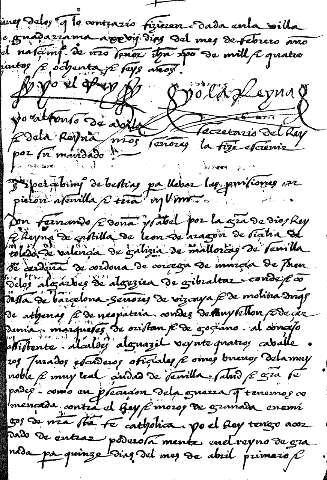 nes de los q lo contrario fizieren dada en la villa
guadarrama xxviij dias del mes de febrero año
del nascimi de nro señor ihu xpo de mill e quatro
cientos e ochenta e seys años
yo el Rey yo la Reyna
yo alfonso de avila secretario del Rey
e de la Reyna nros señores la fize escreuir
por su mandado
de bestias pa llebar las prouisiones
a seuilla e
Don fernando e doña ysabel por la gra de dios Rey
e Reyna de castilla de leon de aragon de secilia de
toledo de valencia de galizia de mallorcas de seuilla
de cerdeña de cordoua de corcega de murcia de Jahen
de los algarbes de algezira de gibraltar conde e co
dessa de barcelona señores de vizcaya e de molina duqs
de athenas e de neopatria condes de Ruysellon e de cer
dania marqueses de oristan e de goçiano al concejo
asistente alcaldes alguazil veynte quatros cavalle
ros Jurados escuderos ofiçiales e omes buenos de la muy
noble e muy leal cibdad de seuilla salud e gra se
pades como en prosecucion de la guerra q tenemos co
mençada contra el Rey e moros de granada enemi
gos de nra santa fe catholica yo el Rey tengo acor
dado de entrar poderosa mente en el reyno de gra
nada pa quinze dias del mes de abril primero